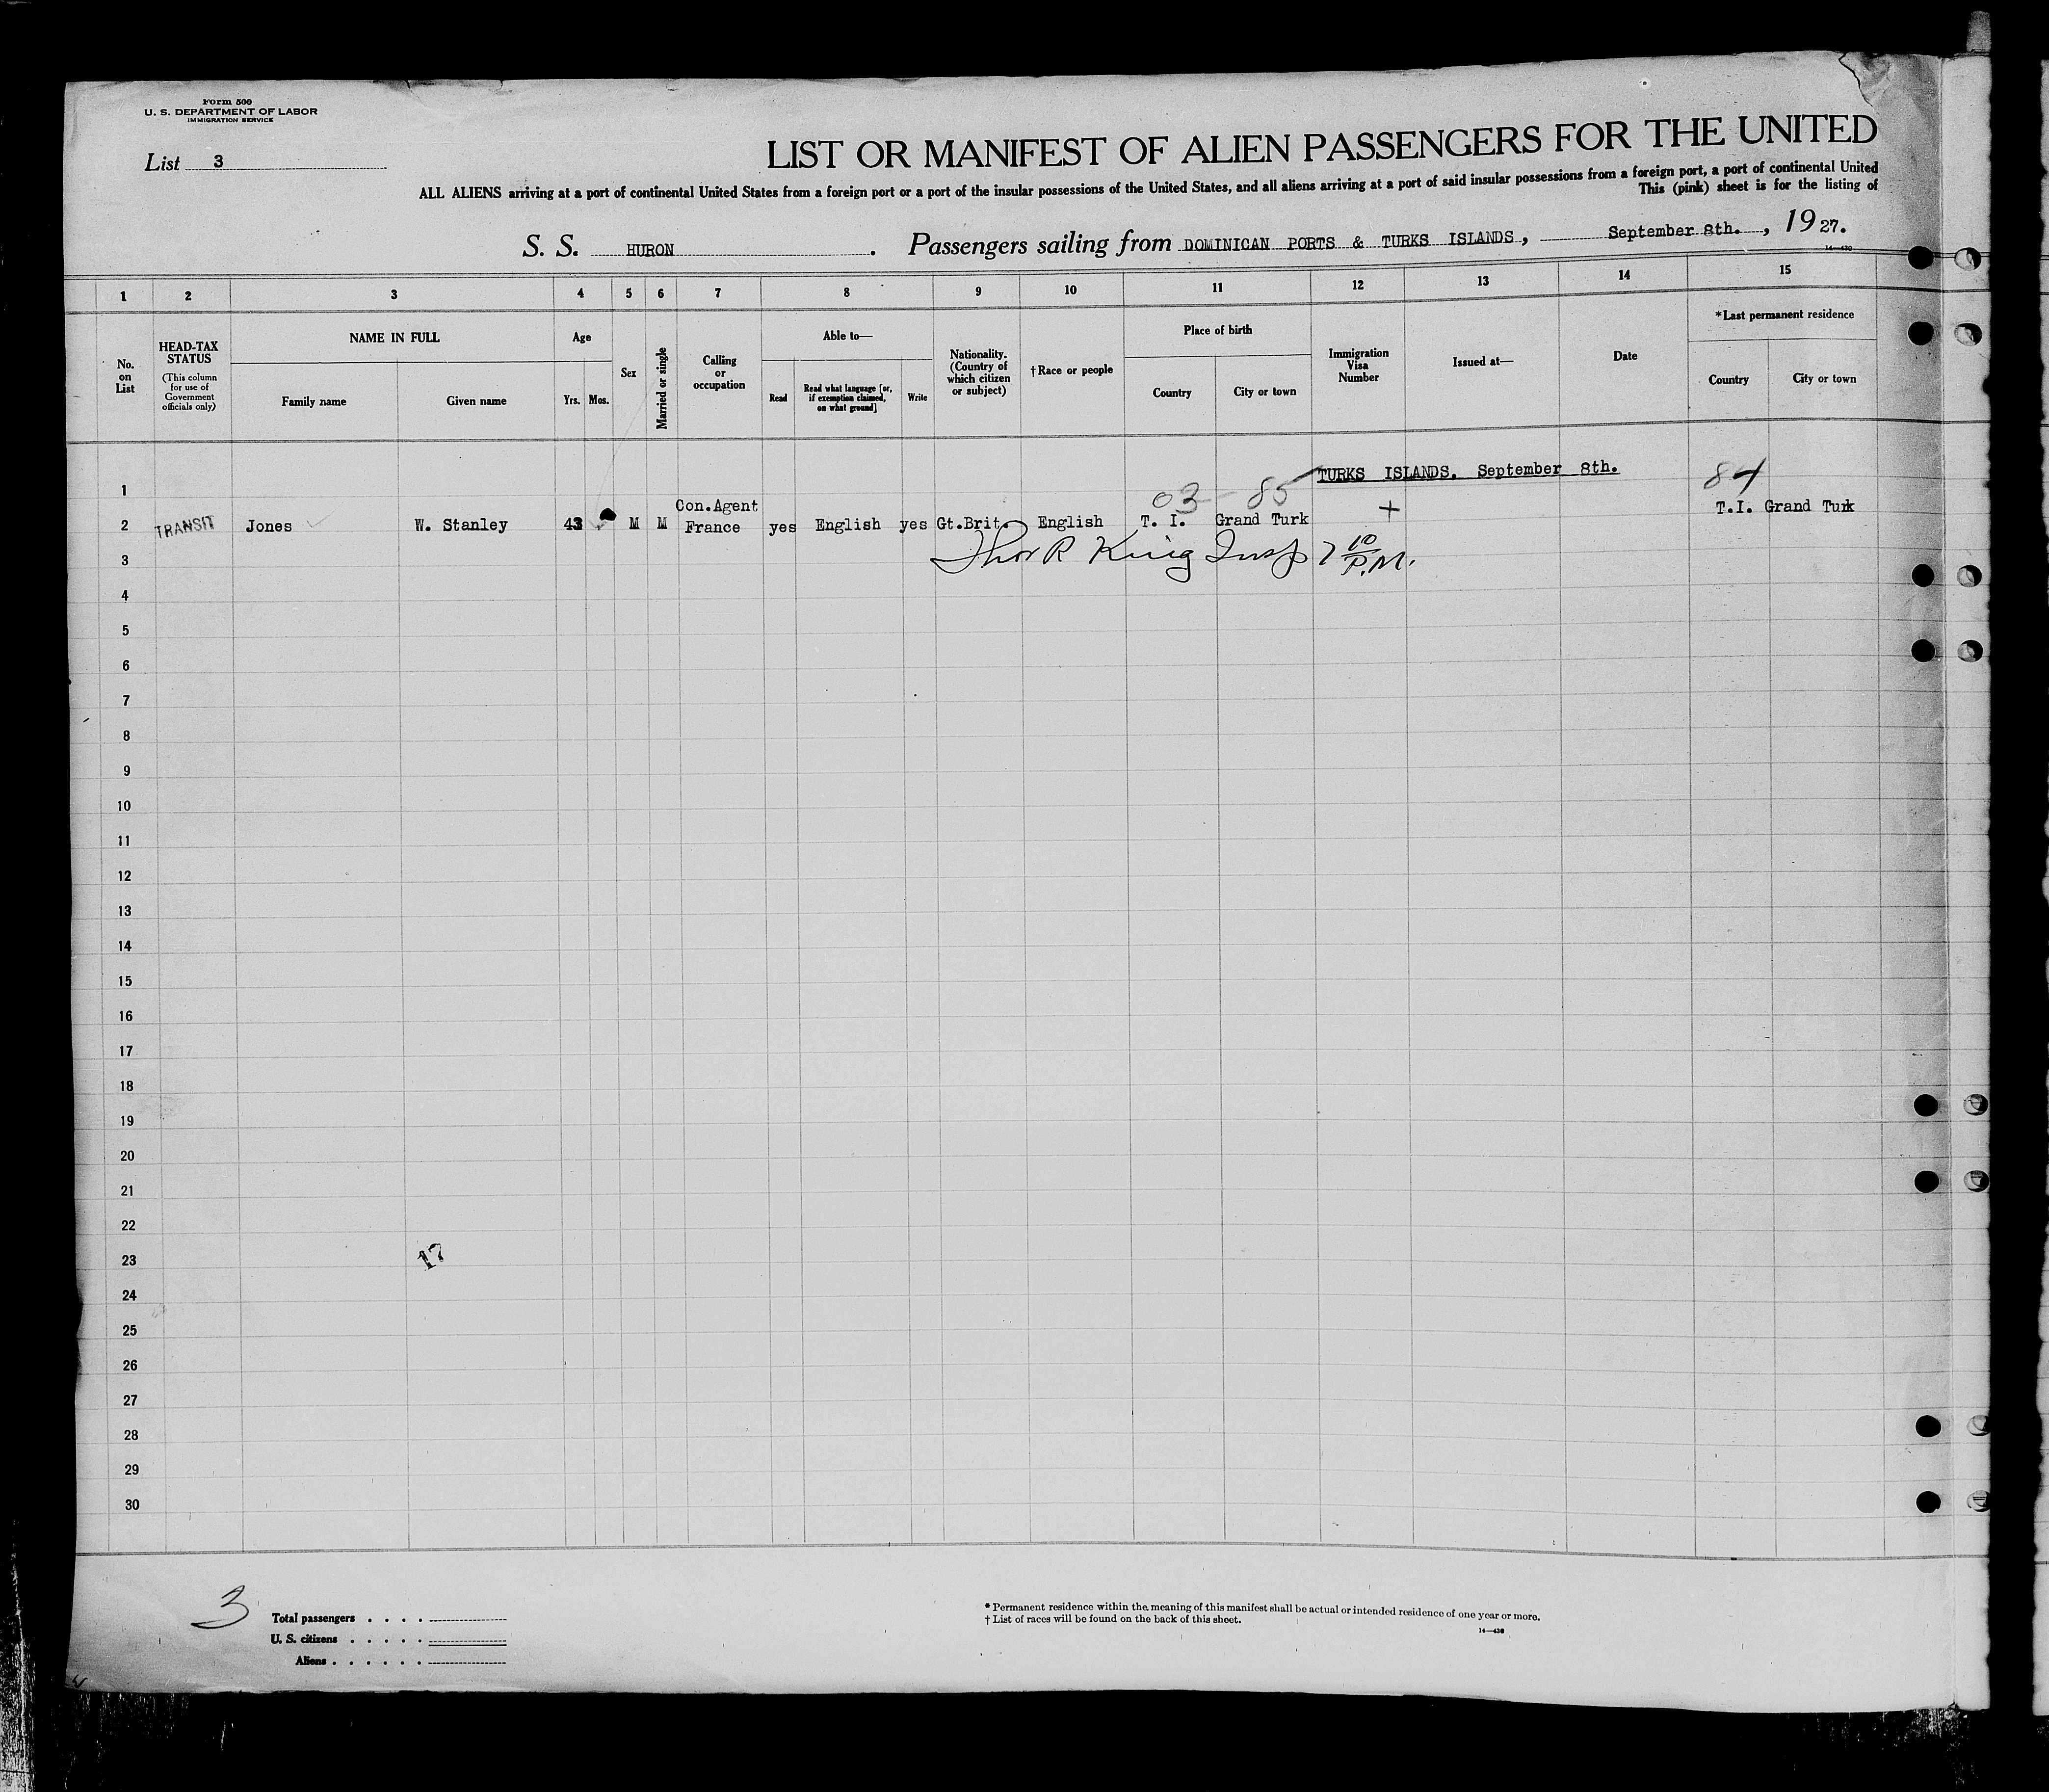 Form 500
U. S. DEPARTMENT OF LABOR
IMMIGRATION SERVICE
List 3
LIST OR MANIFEST OF ALIEN PASSENGERS FOR THE UNITED
ALL ALIENS arriving at a port of continental United States from a foreign port or a port of the insular possessions of the United States, and all aliens arriving at a port of said insular possessions from a foreign port, a port of continental United
This (pink) sheet is for the listing of
S. S. HURON. Passengers sailing from DOMINICAN PORTS & TURKS ISLANDS, September 8th., 1927.
14—430
1 2 3 4 5 6 7 8 9 10 11 12 13 14 15
No. on List
HEAD-TAX STATUS
(This column for use of Government officials only)
NAME IN FULL
Family name
Given name
Age
Yrs. Mos.
Sex
Married or single
Calling or occupation
Able to—
Read
Read what language [or, if exemption claimed, on what ground]
Write
Nationality. (Country of which citizen or subject)
†Race or people
Place of birth
Country
City or town
Immigration Visa Number
Issued at—
Date
*Last permanent residence
Country
City or town
1 TURKS ISLANDS. September 8th.
03 - 85 84
2 TRANSIT Jones W. Stanley 43 M M Con.Agent France yes English yes Gt.Brit. English T. I. Grand Turk + T.I. Grand Turk
3 Thos R King Insp 7 10 P.M.
4
5
6
7
8
9
10
11
12
13
14
15
16
17
18
19
20
21
22
23 17
24
25
26
27
28
29
30
3
Total passengers . . . .
U. S. citizens . . . . .
Aliens . . . . . .
* Permanent residence within the meaning of this manifest shall be actual or intended residence of one year or more.
† List of races will be found on the back of this sheet.
14—430